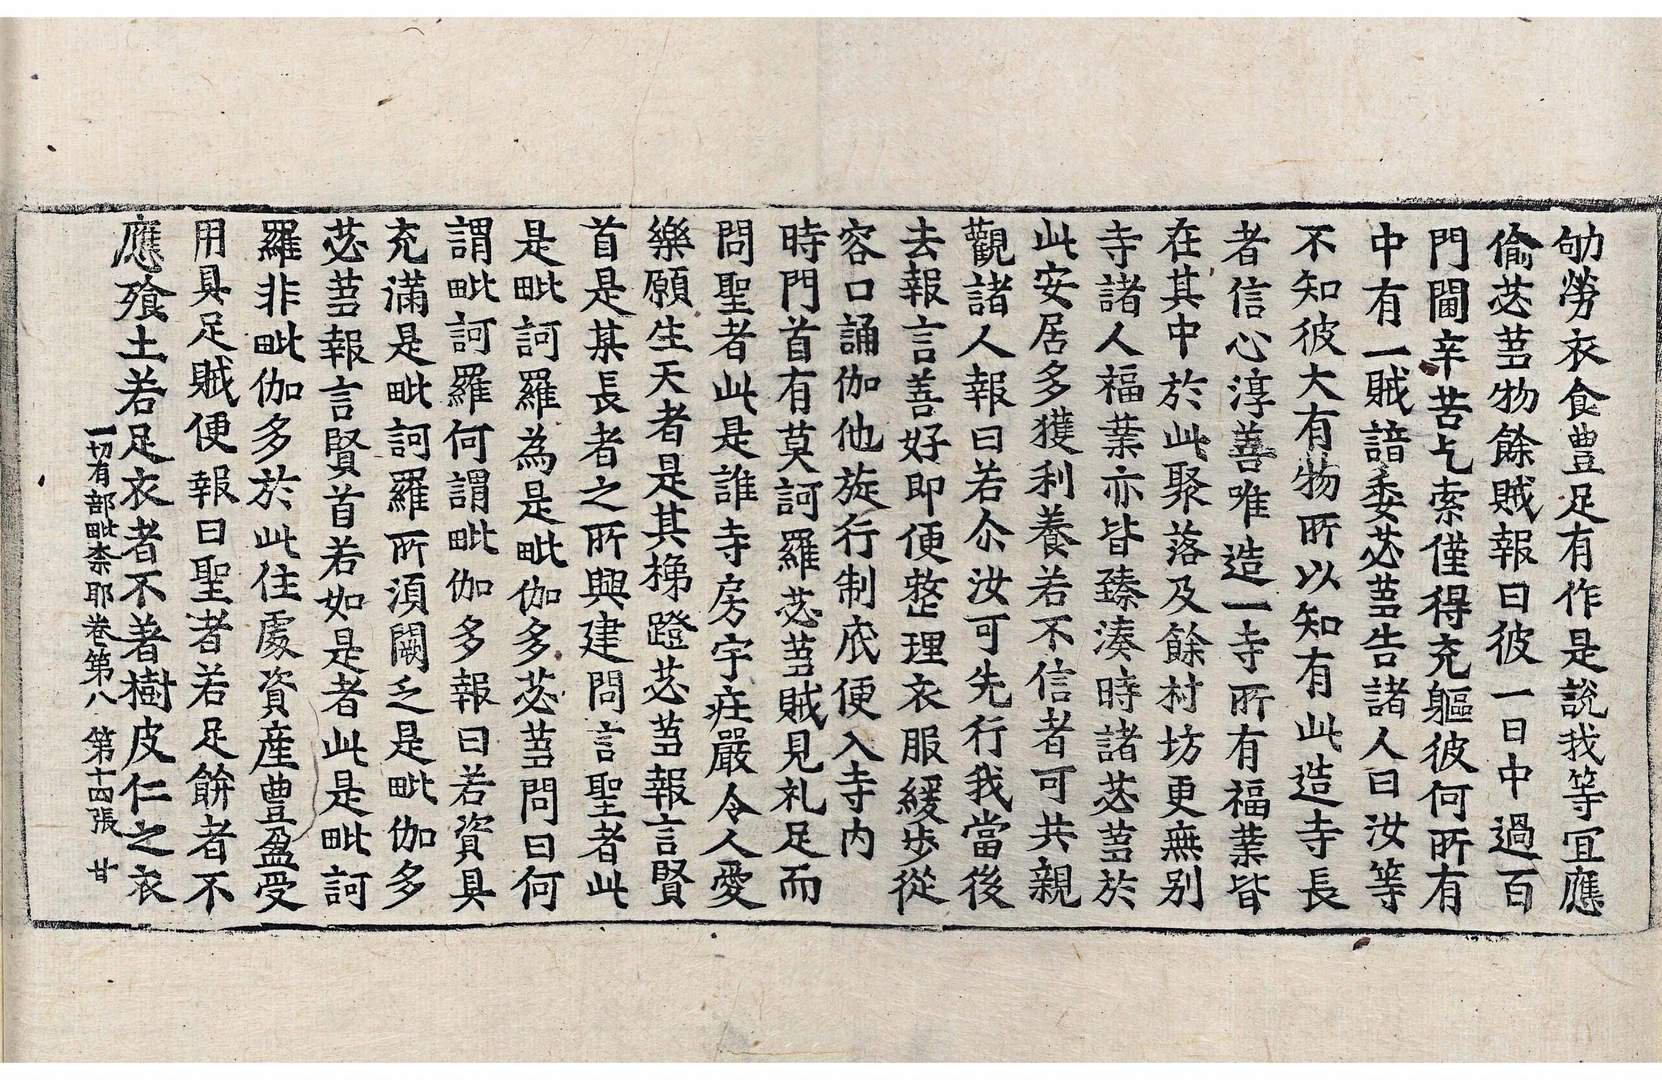 劬勞衣食豊足有作是說我等冝應
偷苾蒭物餘賊報曰彼一日中過百
門閫辛苦乞索僅得充軀彼何所有
中有一賊諳委苾蒭告諸人曰汝等
不知彼大有物所以知有此造寺長
者信心淳善唯造一寺所有福業皆
在其中於此聚落及餘村坊更無别
寺諸人福業亦皆臻湊時諸苾蒭於
此安居多獲利養若不信者可共親
觀諸人報曰若尒汝可先行我當後
去報言善好即便整理衣服緩步從
容口誦伽他旋行制底便入寺内
時門首有莫訶羅苾蒭賊見礼足而
問聖者此是誰寺房宇庄嚴令人愛
樂願生天者是其梯蹬苾蒭報言賢
首是某長者之所興建問言聖者此
是毗訶羅為是毗伽多苾蒭問曰何
謂毗訶羅何謂毗伽多報曰若資具
充滿是毗訶羅所須闕乏是毗伽多
苾蒭報言賢首若如是者此是毗訶
羅非毗伽多於此住處資産豊盈受
用具足賊便報曰聖者若足餅者不
應飡土若足衣者不著樹皮仁之衣
一切有部毗柰耶卷第八 第十四張 甘